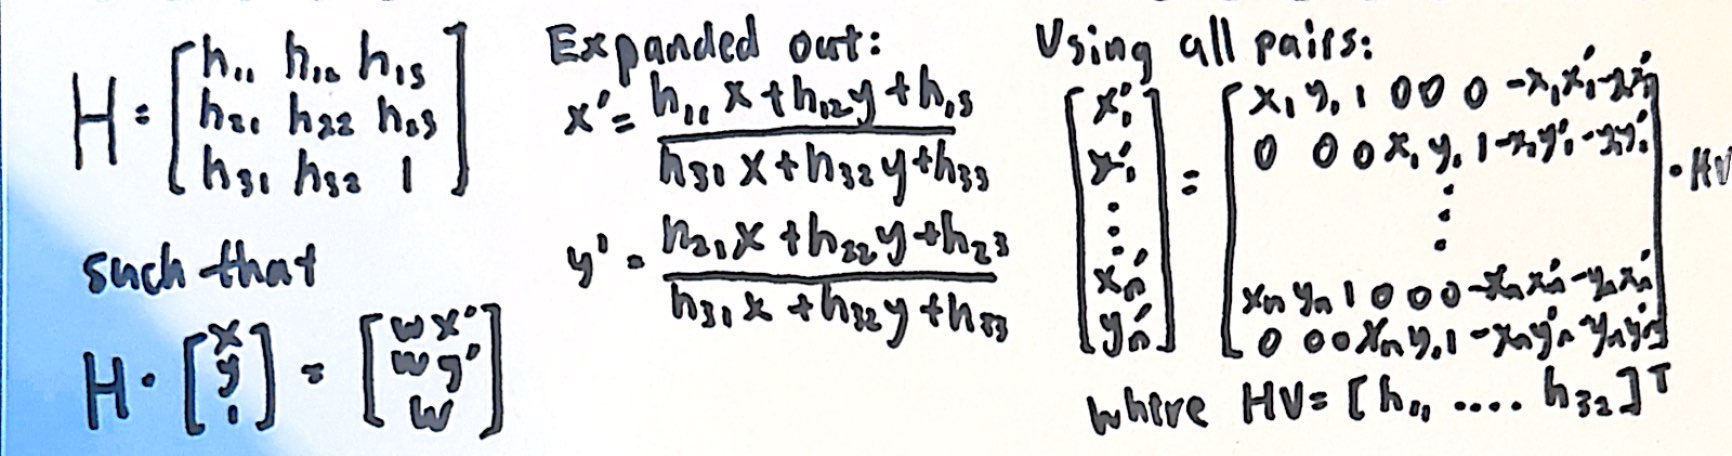 H = [h₁₁ h₁₂ h₁₃
h₂₁ h₂₂ h₂₃
h₃₁ h₃₂ 1]
such that
H · [x y 1] = [wx' wy' w]
Expanded out:
x' = h₁₁x + h₁₂y + h₁₃
h₃₁x + h₃₂y + h₃₃
y' = h₂₁x + h₂₂y + h₂₃
h₃₁x + h₃₂y + h₃₃
Using all pairs:
[x₁' y₁' ⋮ xₙ' yₙ'] =
[x₁ y₁ 1 0 0 0 -x₁x₁' -y₁x₁'
0 0 0 x₁ y₁ 1 -x₁y₁' -y₁y₁'
⋮
xₙ yₙ 1 0 0 0 -xₙxₙ' -yₙxₙ'
0 0 0 xₙ yₙ 1 -xₙyₙ' -yₙyₙ'] · HV
where HV = [h₁₁ .... h₃₂]ᵀ